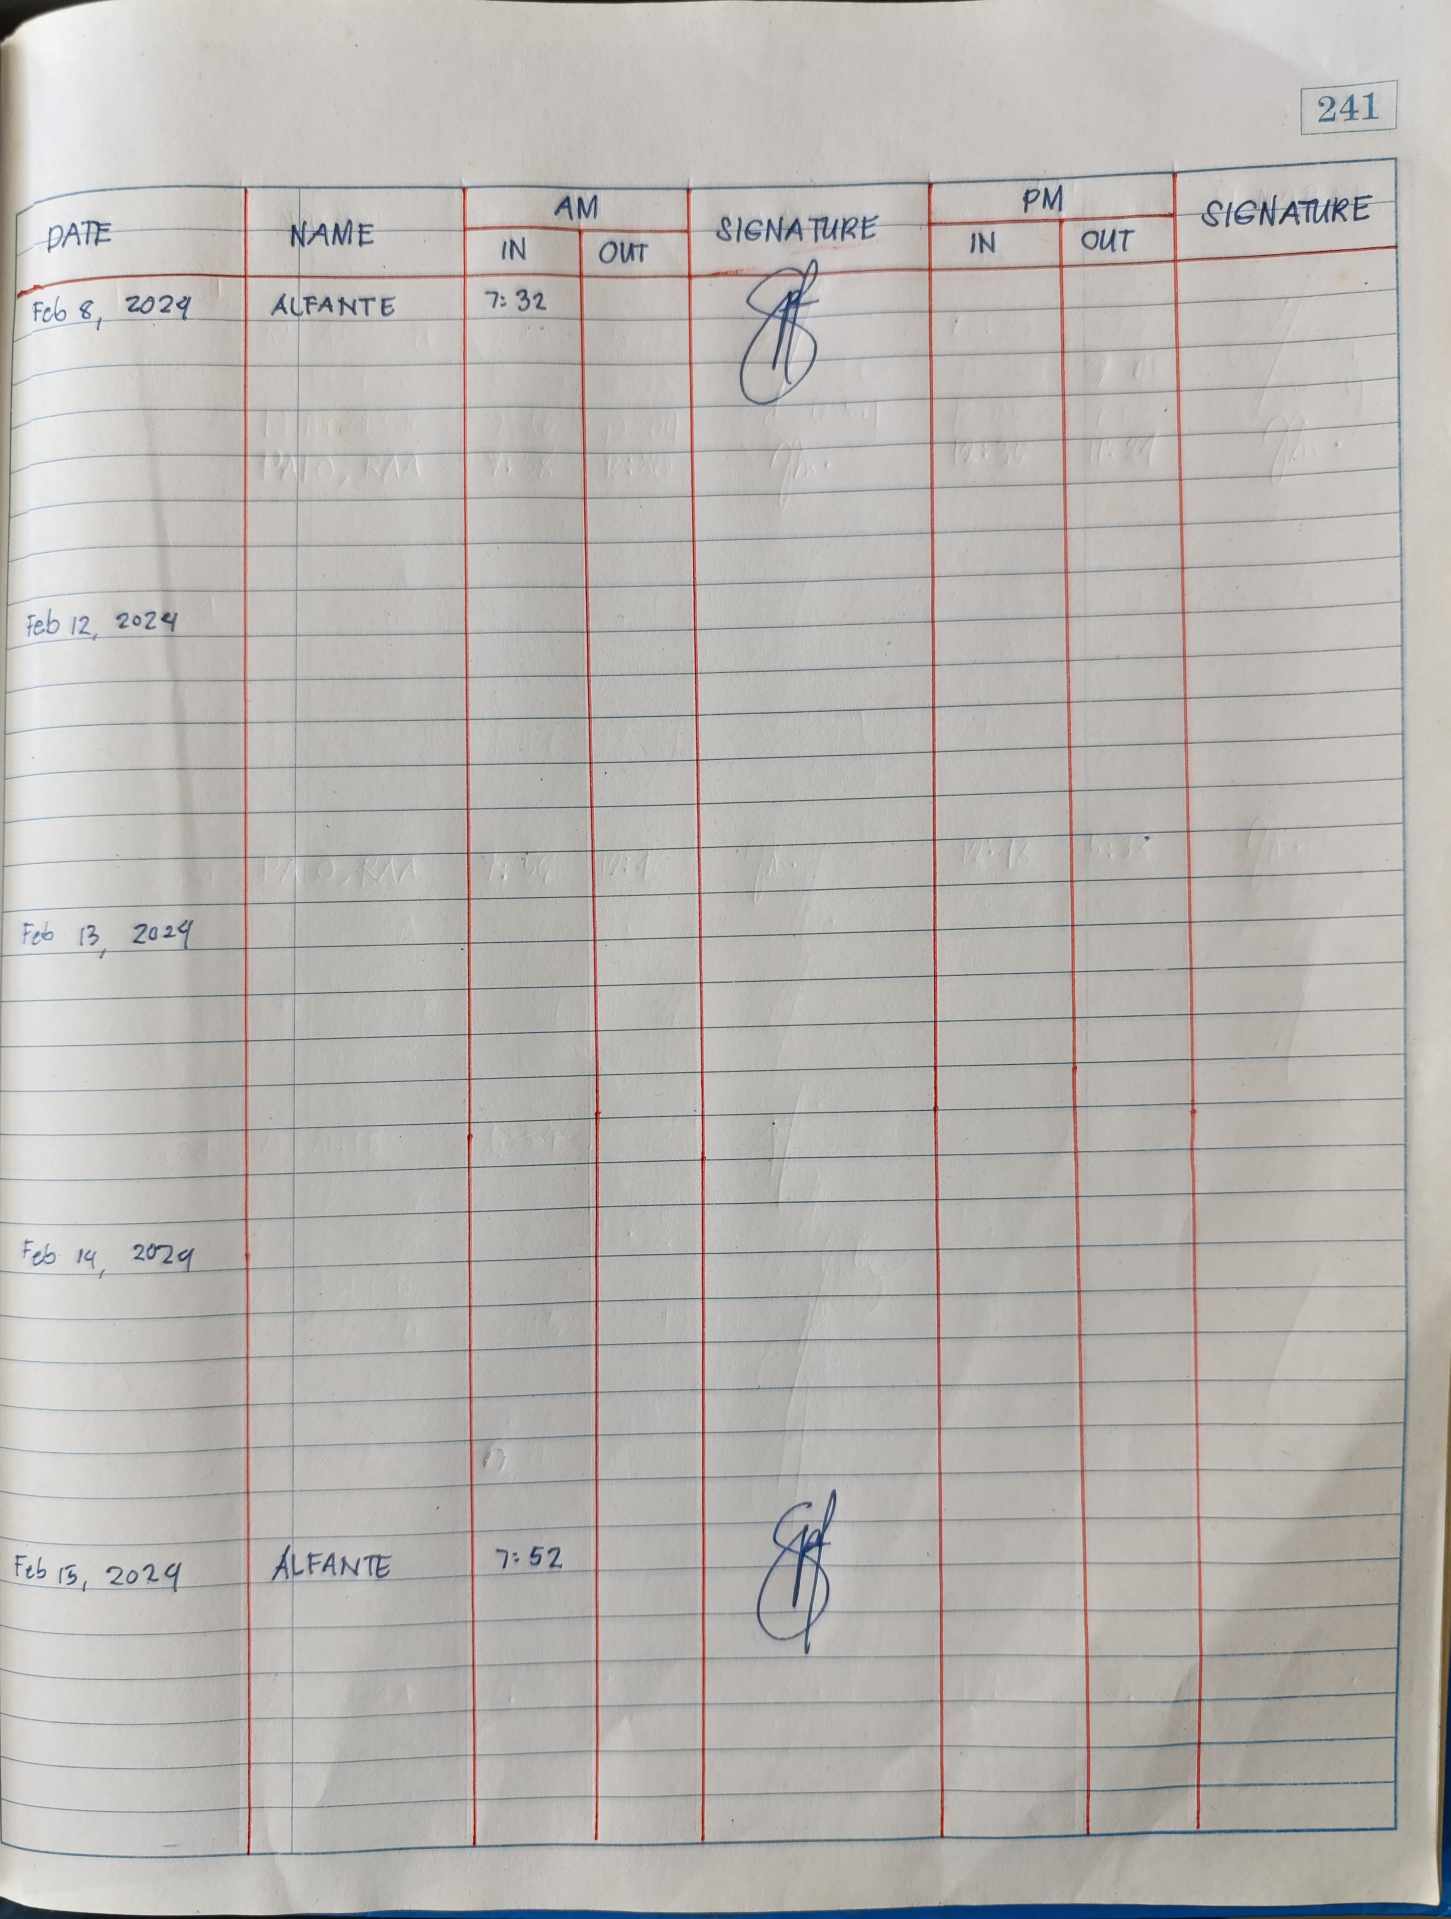 241
DATE NAME AM SIGNATURE PM SIGNATURE
IN OUT IN OUT
Feb 8, 2024 ALFANTE 7:32
Feb 12, 2024
Feb 13, 2024
Feb 14, 2024
Feb 15, 2024 ALFANTE 7:52